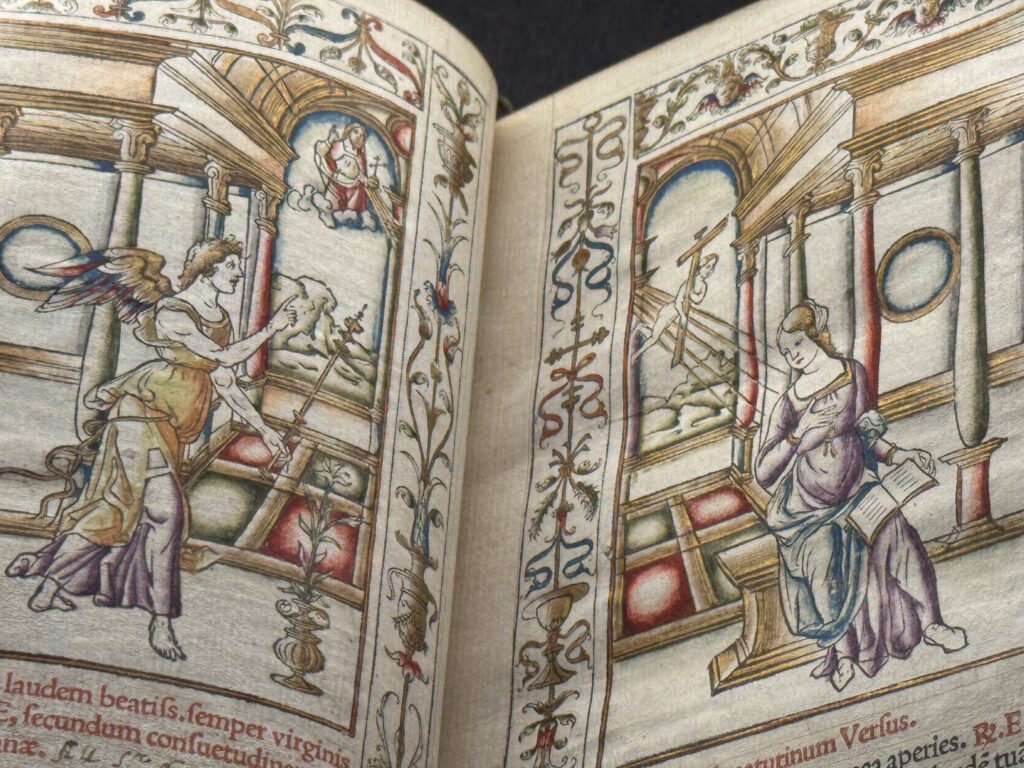 laudem beatiſs. ſemper virginis
ſecundum conſuetudine
næ.
tutinum Verſus.
aperies. ℟. E
tuã